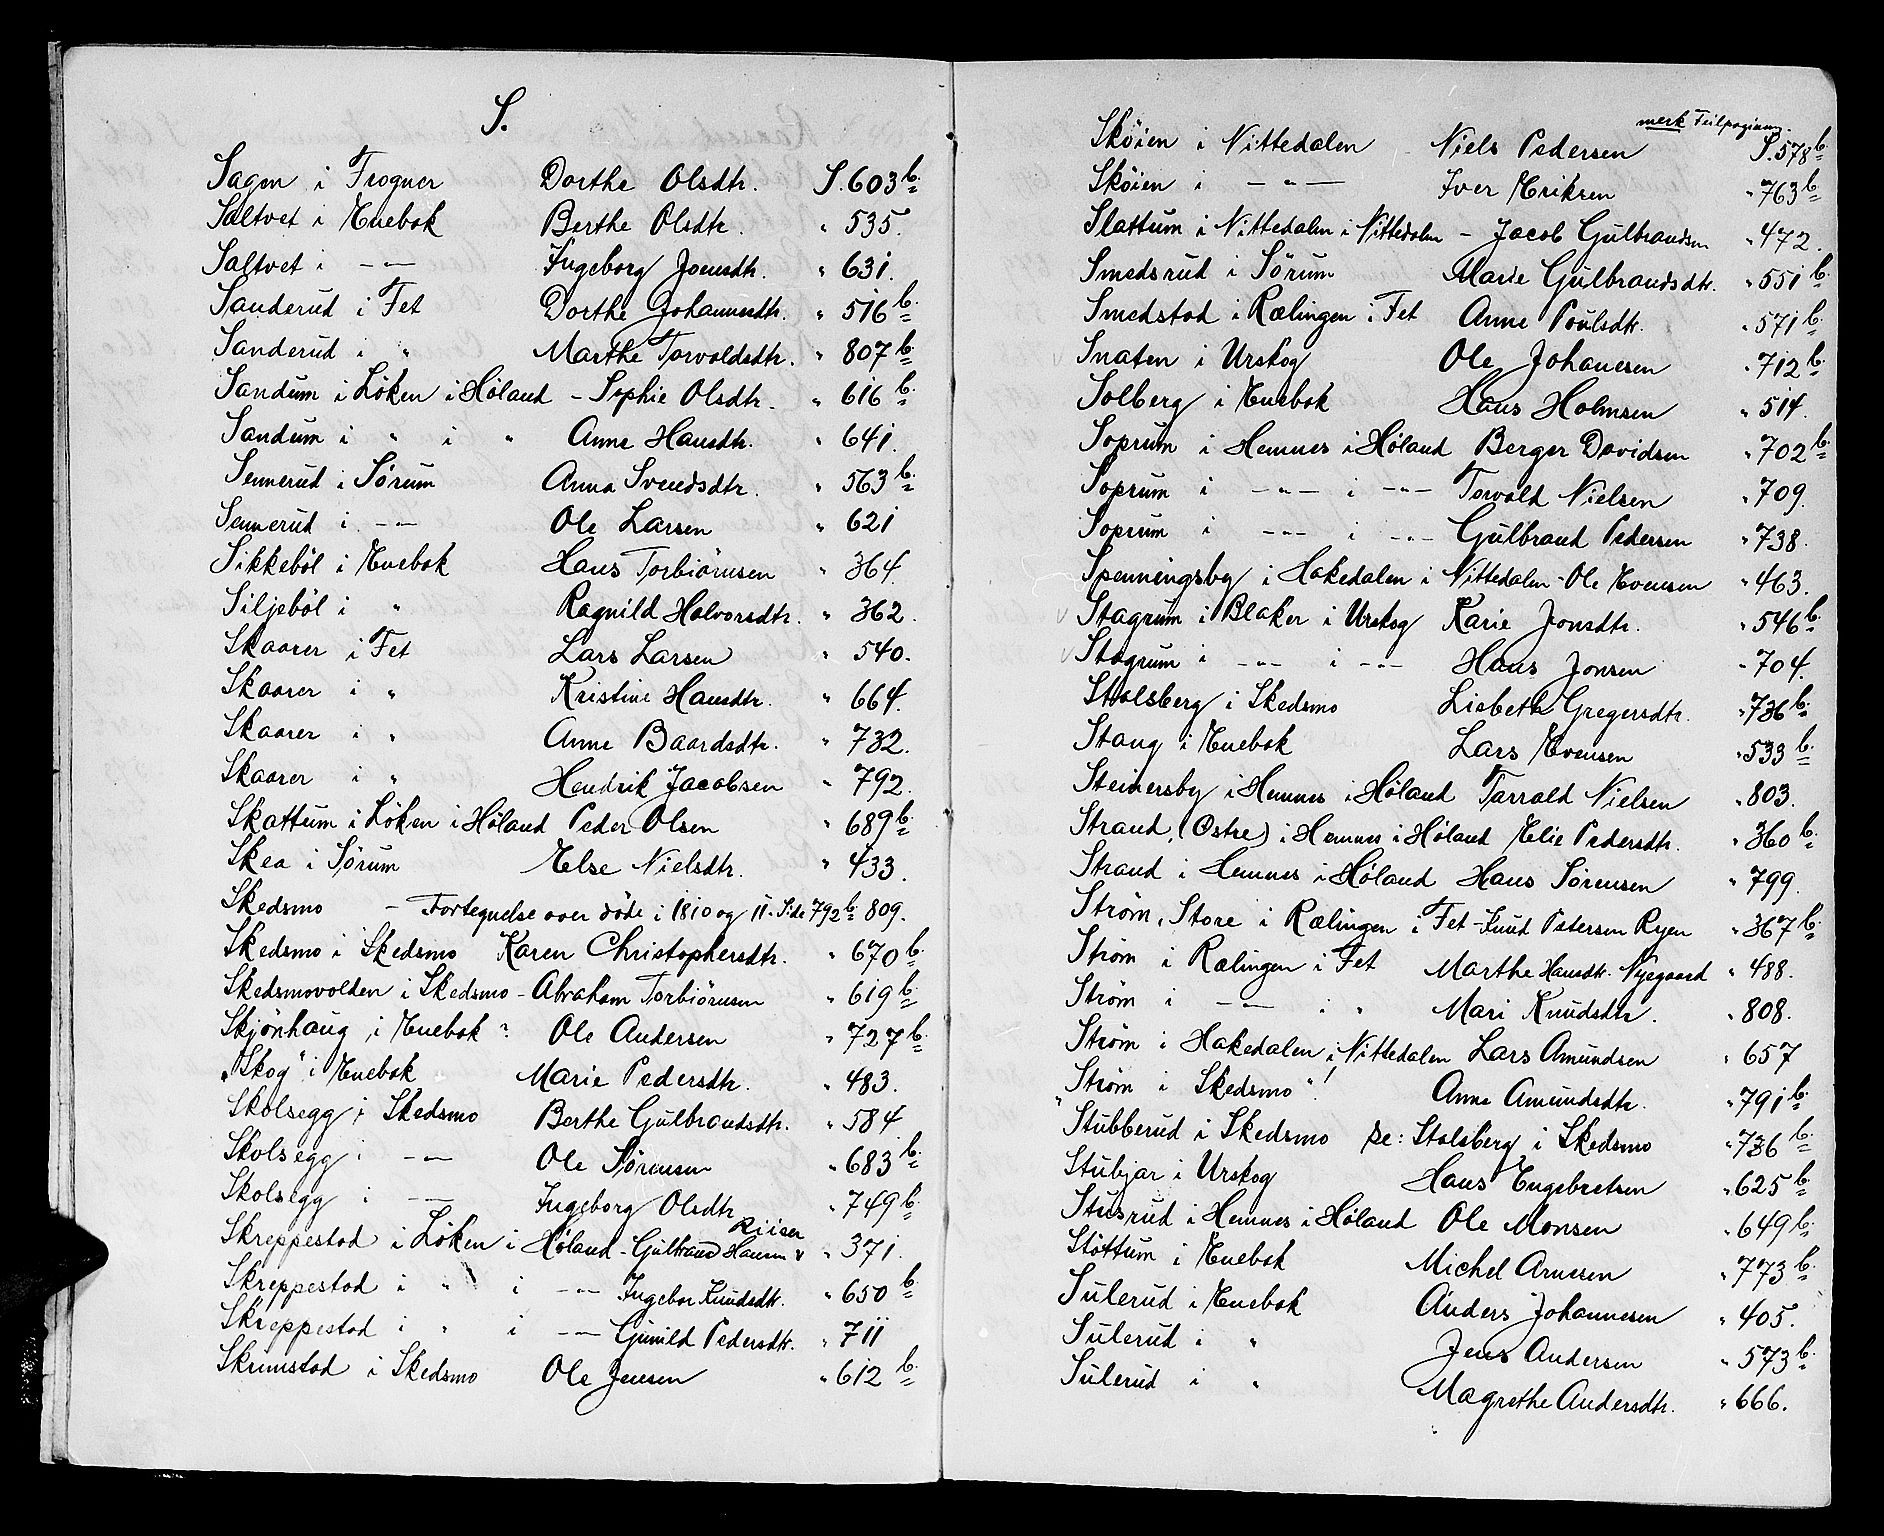 S.
Sagen i Frogner Dorthe Olsdtr. S. 603 b.
Saltvet i Enebak Berthe Olsdtr. " 535.
Saltvet i —"— Ingeborg Joensdtr. " 631.
Sanderud i Fet Dorthe Johannesdtr. " 516 b.
Sanderud i " Marthe Torvaldsdtr. " 807 b.
Sandum i Løken i Høland - Sophie Olsdtr. " 616 b.
Sandum i " i " Anne Hansdtr. " 641.
Sennerud i Sørum Anna Svendsdtr. " 563 b.
Sennerud i —"— Ole Larsen " 621
Sikkeböl i Enebak Hans Torbiörnsen " 364.
Siljeböl i " Ragnild Halvorsdtr. " 362.
Skaarer i Fet Lars Larsen " 540.
Skaarer i " Kristine Hansdtr. " 664.
Skaarer i " Anne Baardsdtr. " 732.
Skaarer i " Hendrik Jacobsen " 792.
Skattum i Løken i Høland Peder Olsen " 689 b.
Skea i Sørum Else Nielsdtr. " 433.
Skedsmo - Fortegnelse over døde i 1810 og 11. Side 792 b. 809.
Skedsmo i Skedsmo Karen Christophersdtr. " 670 b.
Skedsmovolden i Skedsmo - Abraham Torbiörnsen " 619 b.
Skjönhaug i Enebak ? Ole Andersen " 727 b.
"Skog" i Enebak Marie Pedersdtr. " 483.
Skolsegg i Skedsmo Berthe Gulbrandsdtr. " 584
Skolsegg i —"— Ole Sørensen " 683 b.
Skolsegg i —"— Ingeborg Olsdtr. " 749 b.
Skreppestad i Løken i Høland - Gulbrand Hansen Riiser " 371.
Skreppestad i " i —"— Ingebor Knudsdtr. " 650 b.
Skreppestad i " i —"— Gunild Pedersdtr. " 711
Skrimstad i Skedsmo Ole Jensen " 612 b.
merk Feilpaginer.
Sköien i Nittedalen Niels Pedersen S. 578 b.
Sköien i —"— Iver Eriksen " 763 b.
Slattum i Nittedalen i Nittedalen - Jacob Gulbrandsen " 472.
Smedsrud i Sørum Marie Gulbrandsdtr. " 551 b.
Smedstad i Rælingen i Fet Anne Poulsdtr. " 571 b.
Snaten i Urskog Ole Johanesen " 712 b.
Solberg i Enebak Hans Holmsen " 514.
Soprum i Hemnes i Høland Berger Davidsen " 702 b.
Soprum i —"— i —"— Torvald Nielsen " 709.
Soprum i —"— i —"— Gulbrand Pedersen " 738.
Spenningsby i Hakedalen i Nittedalen - Ole Evensen " 463.
Stagrum i Blaker i Urskog Karie Jonsdtr. " 546 b.
Stagrum i —"— i —"— Hans Jonsen " 704.
Stalsberg i Skedsmo Lisbeth Gregersdtr. " 736 b.
Stang i Enebak Lars Evensen " 533 b.
Steinersby i Hemnes i Høland Tarrald Nielsen " 803.
Strand, (Østre) i Hemnes i Høland Elie Pedersdtr. " 360 b.
Strand i Hemnes i Høland Hans Sörensen " 799.
Strøm, Store i Rælingen i Fet - Knud Petersen Ryen " 367 b.
Strøm i Rælingen i Fet Marthe Hansdtr. Nyegaard " 488.
Strøm i —"— i " Mari Knudsdtr. " 808.
Strøm i Hakedalen i Nittedalen Lars Amundsen " 657
"Strøm i Skedsmo"! Anne Amundsdtr. " 791 b.
Stubberud i Skedsmo se: Stalsberg i Skedsmo " 736 b.
Stubjar i Urskog Hans Engebretsen " 625 b.
Stusrud i Hemnes i Høland Ole Monsen " 649 b.
Støttum i Enebak Michel Arnesen " 773 b.
Sulerud i Enebak Anders Johannesen " 405.
Sulerud i " Jens Andersen " 573 b.
Sulerud i " Magrethe Andersdtr. " 666.